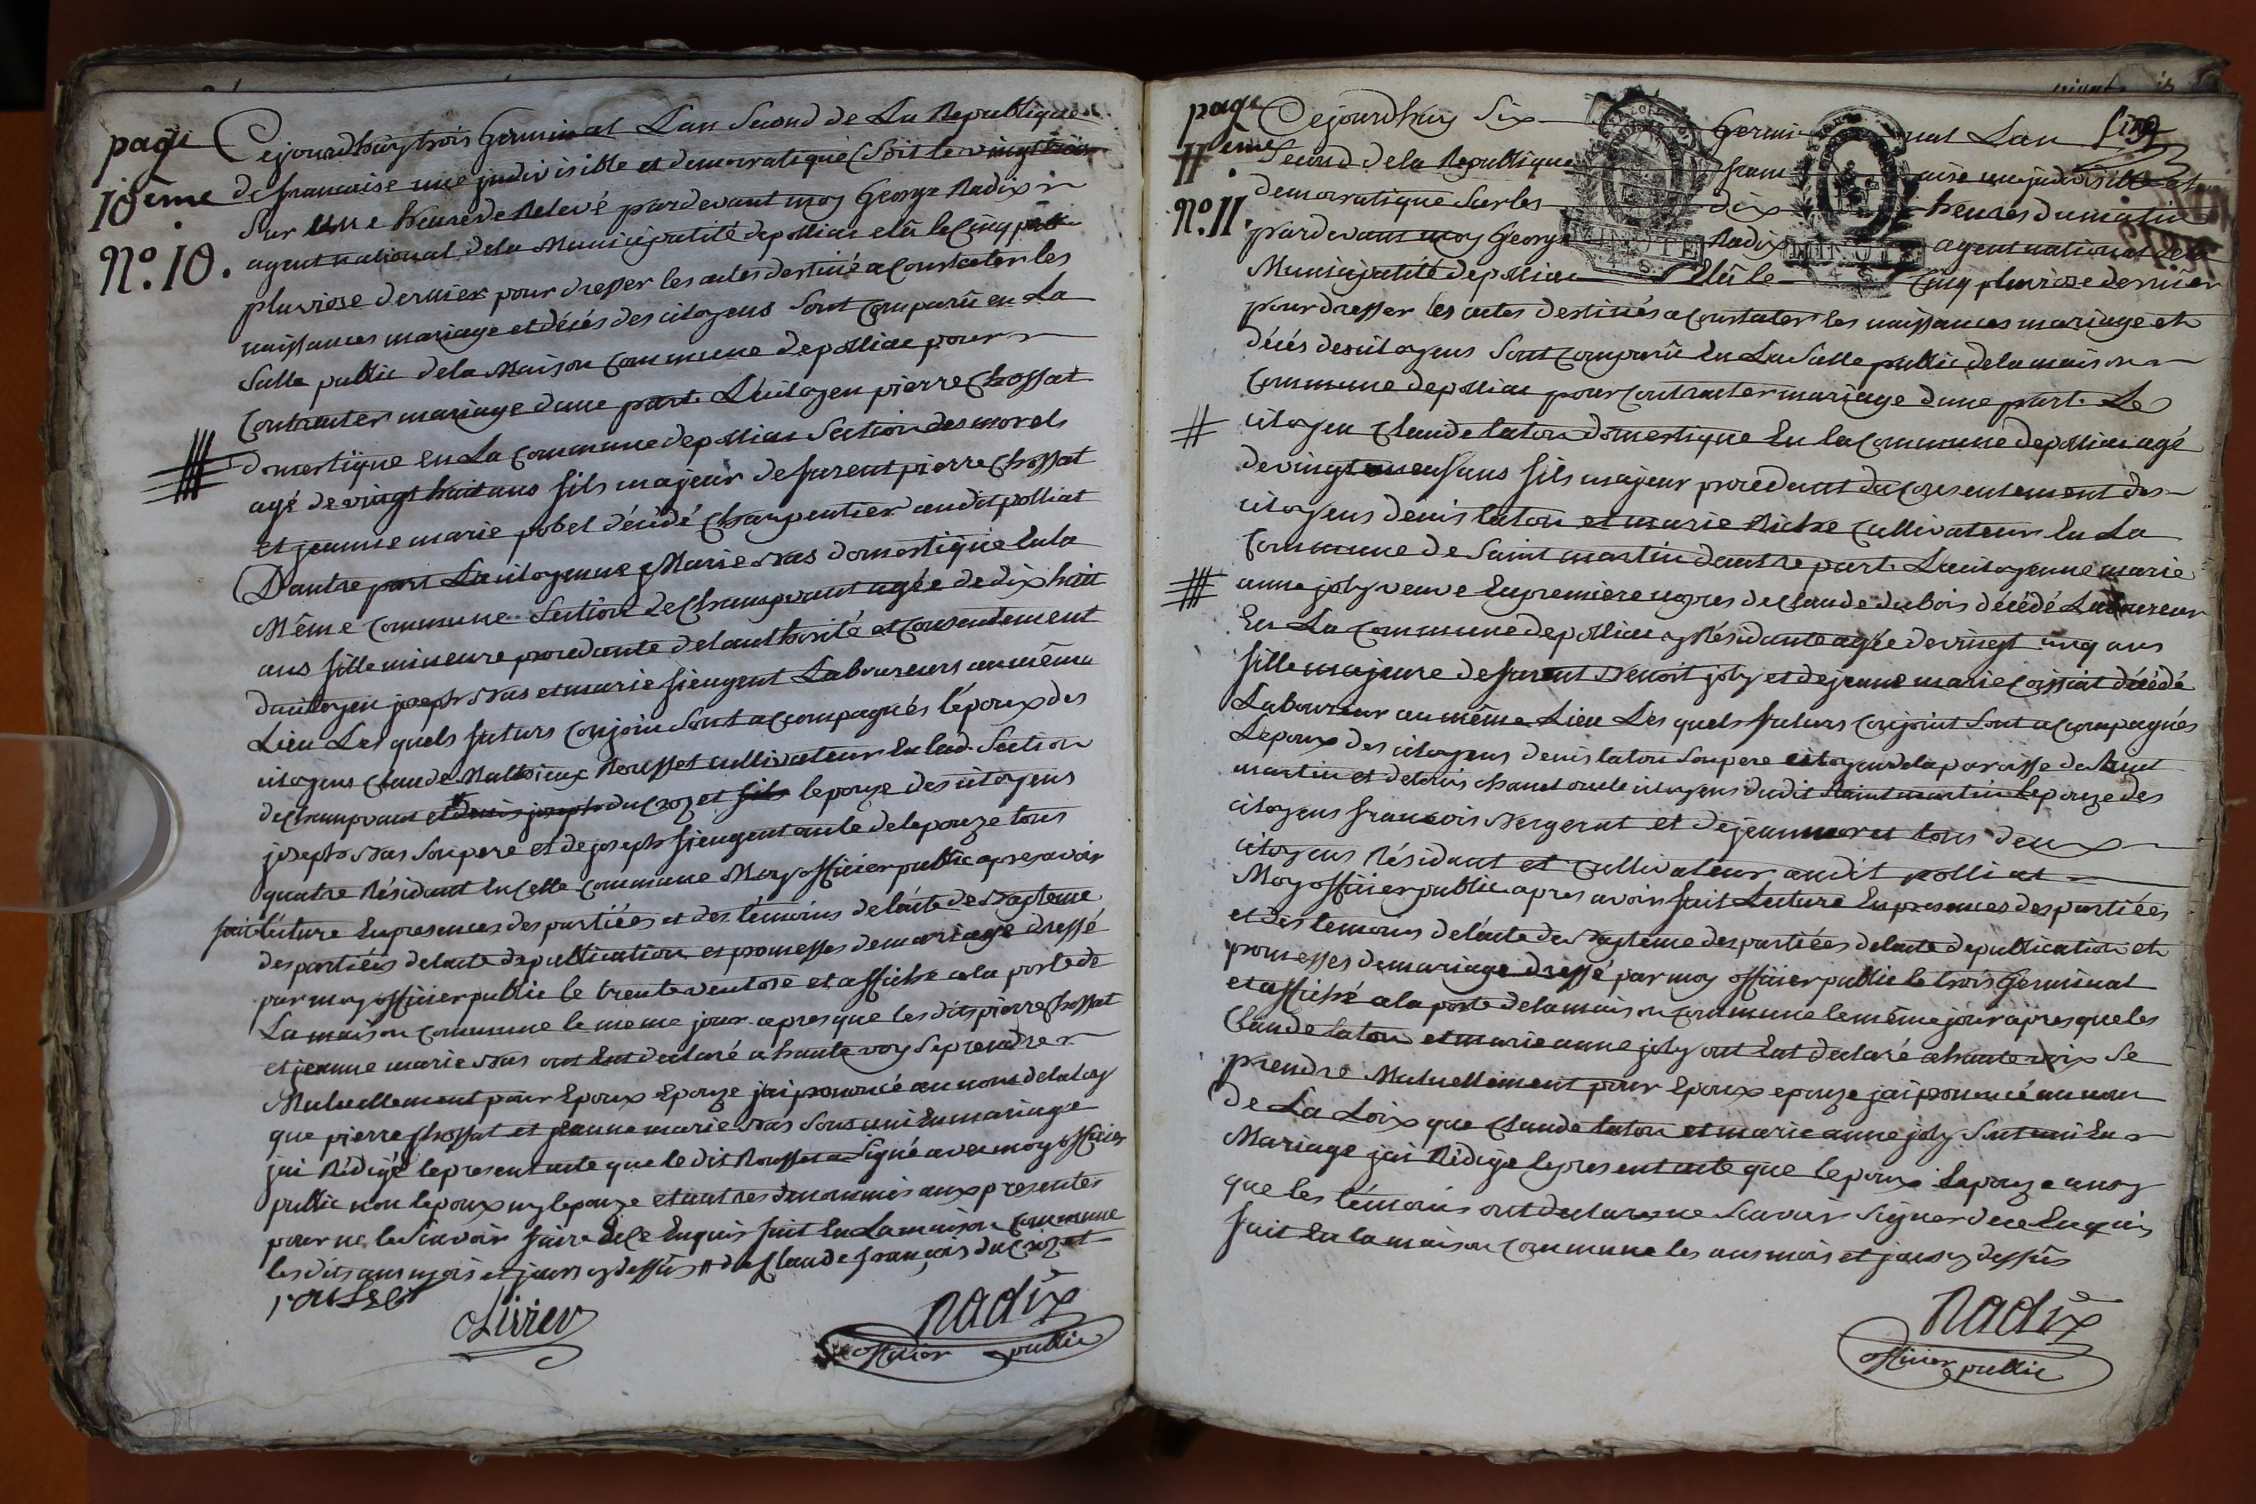 page
10ème
N.° 10.
Cejourdhuy trois Germinal Lan Second de La Republique
de francaise une jndivisible et democratique (Soit le vingt trois
Sur une heure de Relevé pardevant moy George Nadix
agent national de la Municipalité de polliac elû le Cinq
pluviose dernier pour dresser les actes destiné a Constater les
naissances mariage et décés des citoyens Sont Comparû en La
Salle public de la Maison Commune de polliac pour
Contracter mariage dune part. Le citoyen pierre Chossat
domestique en La Commune de polliac Section des morels
agé de vingt huit ans fils majeur de furent pierre Chossat
et jeanne marie pobel décédé Charpentier audit polliat
D'autre part La citoyenne Marie vas domestique En la
Même Commune Section de Champvant agée de dix huit
ans fille mineure procedante de l'authorité et Consentement
du citoyen joseph vas et marie fiengent Laboureurs au même
Lieu Les quels futurs Conjoin Sont acompagnés l'époux des
citoyens Claude Mathieux Rousset cultivateur En lad. Section
de Champvant et denis joseph du Crozet fils lepouze des citoyens
joseph vas Son pere et de joseph fiengent oncle de lepouze tous
quatre Résidant En Cette Commune Moy officier public apres avoir
fait lécture En presences des partiées et des témoins de l'acte de Bapteme
des partiées de lacte de publication et promesses de mariage dressé
par moy officier public le trente ventose et affiché a la porte de
La maison Commune le meme jour apres que les dits pierre Chossat
et jeanne marie vas ont Eut declaré a haute voy Se prendre
Mutuellement pour Epoux Epouze j'ai prononcé au nom de la loy
que pierre Chossat et jeanne marie vas Sons uni En mariage
jai Rédigé le present acte que le dit Rousset a Signé avec moy officier
public non lepoux ny lepouze et autres dénommés aux presentes
pour ne le Scavoir faire de Ce Enquis fait En La maison Commune
les dits ans mois et jours cy dessûs # de Claude françois du Crozet
rousset
Olivier
Nadix
officier public
page
11ème
N.° 11.
Cejourdhuy Six Germi nal Lan
Second de la Republique franc aise une jndivisible et
democratique Sur les dix heures du matin
pardevant moy George Nadix agent national de la
MINUTE MINUTE
Municipalité de polliac Elû le Cinq pluviose dernier
pour dresser les actes destinés a Constater les naissances mariage et
décés des citoyens Sont Comparû En La Salle public de la maison
Commune de polliac pour Contracter mariage dune part. Le
citoyen Claude laton domestique En la Commune de polliac agé
de vingt ans fils majeur procedant du Consentement des
citoyens denis laton et marie Riche Cultivateur En La
Commune de Saint martin dautre part. La citoyenne marie
anne joly veuve En premiere nopces de Claude dubois décédé Laboureur
En La Commune de polliac y Résidante agée de vingt cinq ans
fille majeure de furent Benoit joly et de jeanne marie Coissiat décédé
Laboureur au même Lieu Les quels futurs Conjoint Sont acompagnés
Lepoux des citoyens denis laton Son pere citoyen de la paroisse de Saint
martin et de louis chanel oncle citoyens dudit Saint martin Lepouze des
citoyens francois Bergerat et de jean moret tous deux
citoyens Résidant et Cultivateur audit polliat
Moy officier public apres avoir fait Lecture En presences des partiées
et des temoins de lacte de Bapteme des partiées de lacte de publication et
promesses de mariage dressé par moy officier public le trois Germinal
et affiché a la porte de la maison Commune le même jour apres que les
Claude laton et marie anne joly ont Eut declaré a haute voix Se
prendre Mutuellement pour Epoux epouze jai prononcé au nom
de La Loix que Claude laton et marie anne joly Sont uni En
Mariage jai Rédigé le present acte que lepoux lepouze ainsy
que les témoins ont declaré ne Scavoir Signer de ce Enquis
fait En la maison Commune les ans mois et jours cy dessûs
Nadix
officier public